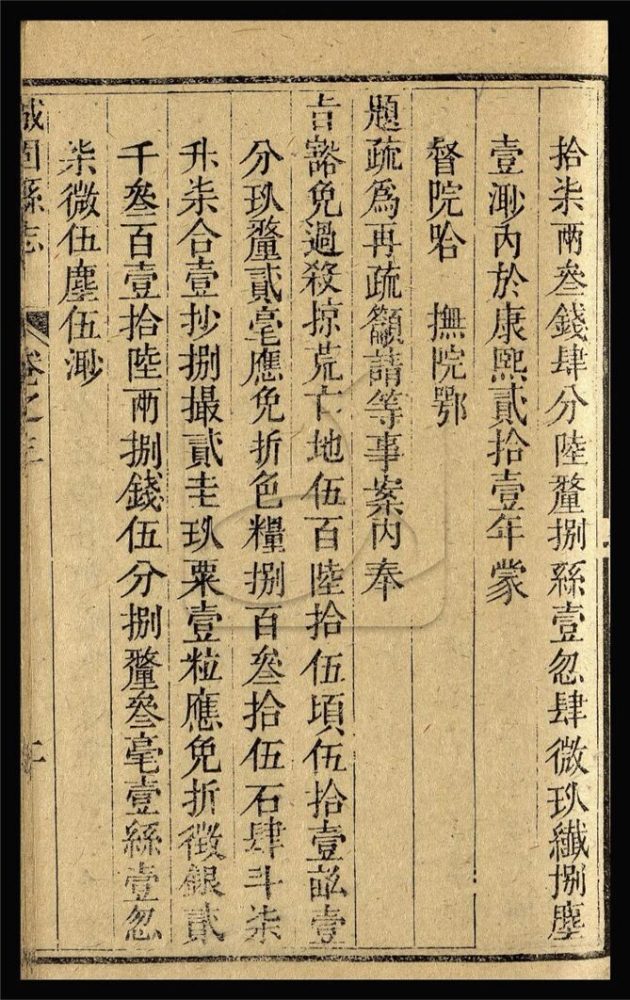 拾柒兩叁錢肆分陸釐捌絲壹忽肆微玖纖捌塵
壹渺內於康熙貳拾壹年蒙
督院哈　撫院鄂
題疏為再疏籲請等事案內奉
旨豁免過殺掠荒亡地伍百陸拾伍頃伍拾壹畝壹
分玖釐貳毫應免折色糧捌百叁拾伍石肆斗柒
升柒合壹抄捌撮貳圭玖粟壹粒應免折徵銀貳
千叁百壹拾陸兩捌錢伍分捌釐叁毫壹絲壹忽
柒微伍塵伍渺
城固縣志
卷之三